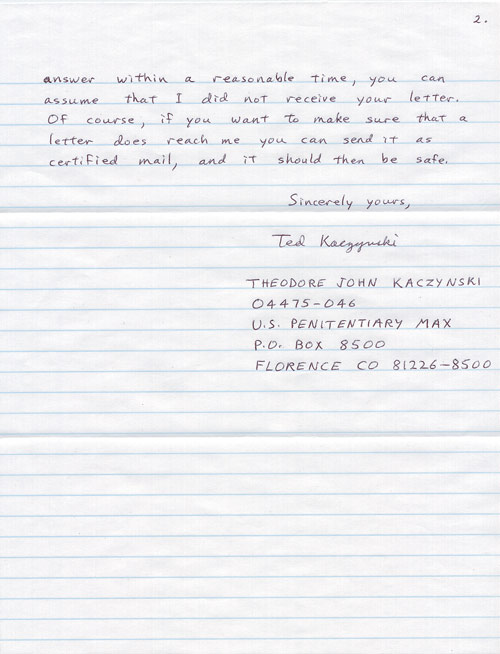 2.
answer within a reasonable time, you can
assume that I did not receive your letter.
Of course, if you want to make sure that a
letter does reach me you can send it as
certified mail, and it should then be safe.
Sincerely yours,
Ted Kaczynski
THEODORE JOHN KACZYNSKI
04475-046
U.S. PENITENTIARY MAX
P.O. BOX 8500
FLORENCE CO 81226-8500